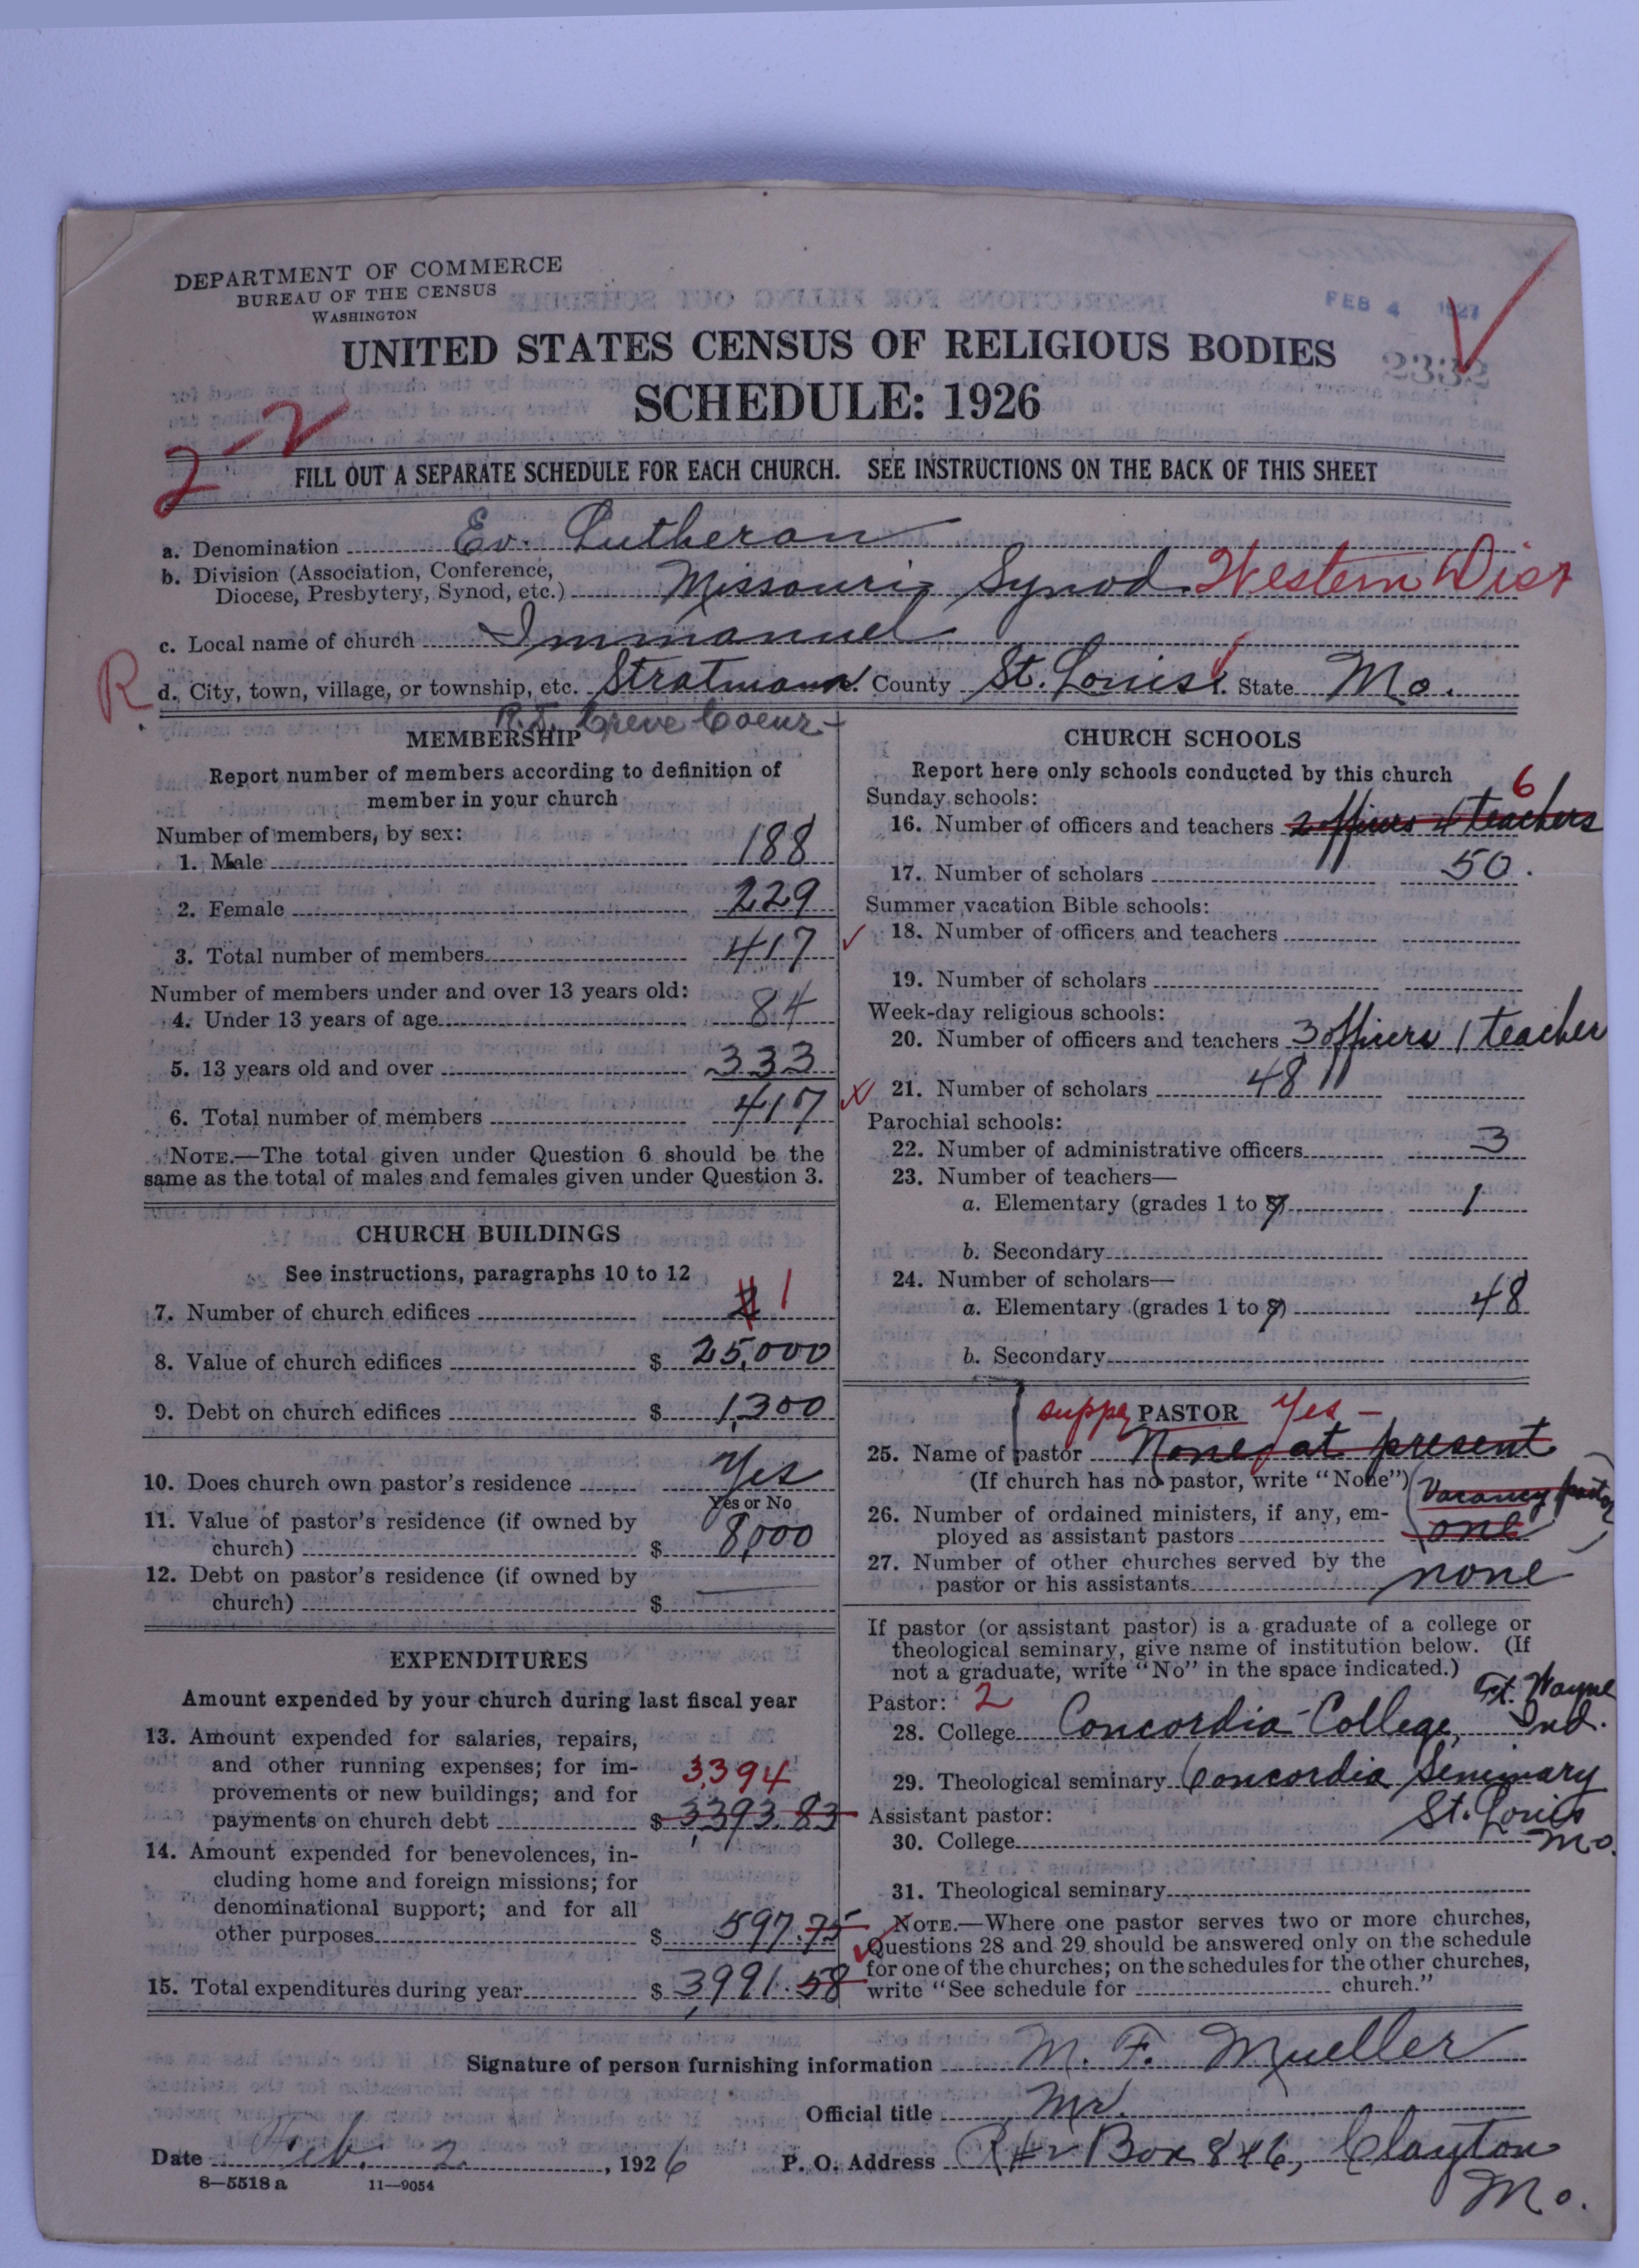 DEPARTMENT OF COMMERCE
BUREAU OF THE CENSUS
WASHINGTON
FEB 4 1927
UNITED STATES CENSUS OF RELIGIOUS BODIES
2332
SCHEDULE: 1926
2-2
FILL OUT A SEPARATE SCHEDULE FOR EACH CHURCH. SEE INSTRUCTIONS ON THE BACK OF THIS SHEET
a. Denomination Ev. Lutheran
b. Division (Association, Conference,
Diocese, Presbytery, Synod, etc.) Missouri Synod. Western Dist
c. Local name of church Immanuel
R d. City, town, village, or township, etc. Stratmann. County St. Louis. State Mo.
R.D. Creve Coeur
MEMBERSHIP
Report number of members according to definition of
member in your church
Number of members, by sex:
1. Male 188
2. Female 229
3. Total number of members 417
Number of members under and over 13 years old:
4. Under 13 years of age 84
5. 13 years old and over 333
6. Total number of members 417
NOTE.—The total given under Question 6 should be the
same as the total of males and females given under Question 3.
CHURCH BUILDINGS
See instructions, paragraphs 10 to 12
7. Number of church edifices 2 1
8. Value of church edifices $ 25,000
9. Debt on church edifices $ 1,300
10. Does church own pastor's residence Yes
Yes or No
11. Value of pastor's residence (if owned by
church) $ 8,000
12. Debt on pastor's residence (if owned by
church) $ —
EXPENDITURES
Amount expended by your church during last fiscal year
13. Amount expended for salaries, repairs,
and other running expenses; for im-
provements or new buildings; and for 3,394
payments on church debt $ 3,393.83
14. Amount expended for benevolences, in-
cluding home and foreign missions; for
denominational support; and for all
other purposes $ 597.75
15. Total expenditures during year $ 3,991.58
CHURCH SCHOOLS
Report here only schools conducted by this church
Sunday schools: 6
16. Number of officers and teachers 2 officers 4 teachers
17. Number of scholars 50.
Summer vacation Bible schools:
18. Number of officers and teachers
19. Number of scholars
Week-day religious schools:
20. Number of officers and teachers 3 officers 1 teacher
21. Number of scholars 48
Parochial schools:
22. Number of administrative officers 3
23. Number of teachers—
a. Elementary (grades 1 to 8) 1
b. Secondary
24. Number of scholars—
a. Elementary (grades 1 to 8) 48
b. Secondary
supply PASTOR Yes —
25. Name of pastor None at present
(If church has no pastor, write "None") (Vacancy pastor
26. Number of ordained ministers, if any, em-
ployed as assistant pastors one)
27. Number of other churches served by the
pastor or his assistants none
If pastor (or assistant pastor) is a graduate of a college or
theological seminary, give name of institution below. (If
not a graduate, write "No" in the space indicated.)
Pastor: 2 Ft. Wayne
28. College Concordia College, Ind.
29. Theological seminary Concordia Seminary
Assistant pastor: St. Louis
30. College Mo.
31. Theological seminary
NOTE.—Where one pastor serves two or more churches,
Questions 28 and 29 should be answered only on the schedule
for one of the churches; on the schedules for the other churches,
write "See schedule for church."
Signature of person furnishing information M. F. Mueller
Official title Mr.
Date Feb. 2, 1926 P. O. Address R#2 Box 846, Clayton
Mo.
8—5518 a 11—9054